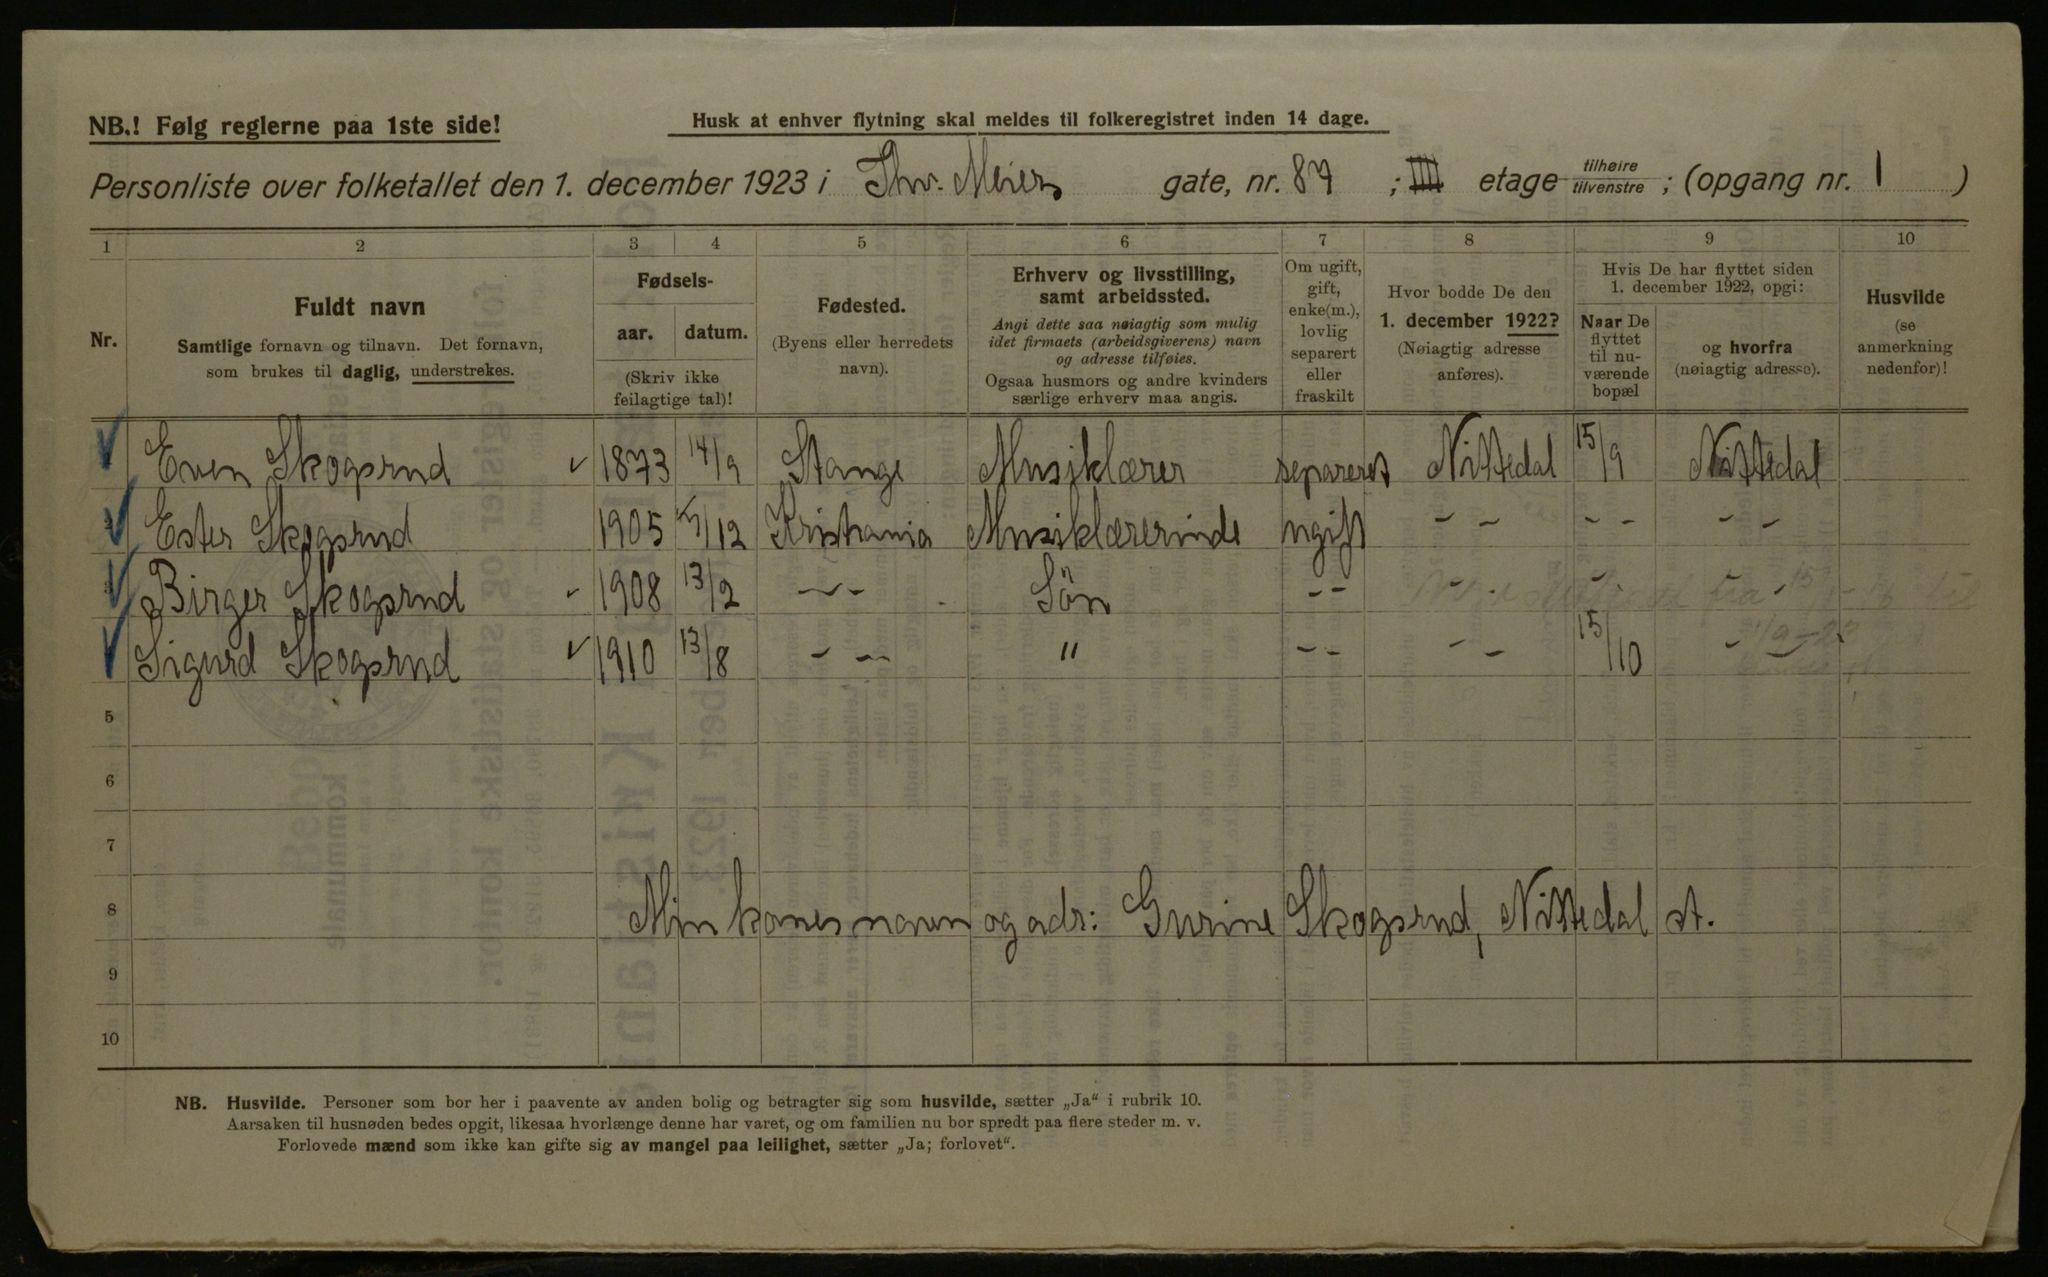 NB.! Følg reglerne paa 1ste side!
Husk at enhver flytning skal meldes til folkeregistret inden 14 dage.
Personliste over folketallet den 1. december 1923 i Thv. Meiers gate, nr. 87 ; IIII etage tilhøire tilvenstre ; (opgang nr. 1 )
1 2 3 4 5 6 7 8 9 10
Nr.
Fuldt navn
Samtlige fornavn og tilnavn. Det fornavn,
som brukes til daglig, understrekes.
Fødsels-
aar. datum.
(Skriv ikke
feilagtige tal)!
Fødested.
(Byens eller herredets
navn).
Erhverv og livsstilling,
samt arbeidssted.
Angi dette saa nøiagtig som mulig
idet firmaets (arbeidsgiverens) navn
og adresse tilføies.
Ogsaa husmors og andre kvinders
særlige erhverv maa angis.
Om ugift,
gift,
enke(m.),
lovlig
separert
eller
fraskilt
Hvor bodde De den
1. december 1922?
(Nøiagtig adresse
anføres).
Hvis De har flyttet siden
1. december 1922, opgi:
Naar De
flyttet
til nu-
værende
bopæl
og hvorfra
(nøiagtig adresse).
Husvilde
(se
anmerkning
nedenfor)!
Even Skogsrud 1873 14/9 Stange Musiklærer separeret Nittedal 15/9 Nittedal
Ester Skogsrud 1905 /12 Kristiania Musiklærerinde ugift - - - - - -
Birger Skogsrud 1908 13/2 - - Sön - - - - -
Sigurd Skogsrud 1910 13/8 - - " - - - - 15/10 - -
5
6
7
8 Min kones navn og adr: Gurine Skogsrud, Nittedal st.
9
10
NB. Husvilde. Personer som bor her i paavente av anden bolig og betragter sig som husvilde, sætter „Ja“ i rubrik 10.
Aarsaken til husnøden bedes opgit, likesaa hvorlænge denne har varet, og om familien nu bor spredt paa flere steder m. v.
Forlovede mænd som ikke kan gifte sig av mangel paa leilighet, sætter „Ja; forlovet“.